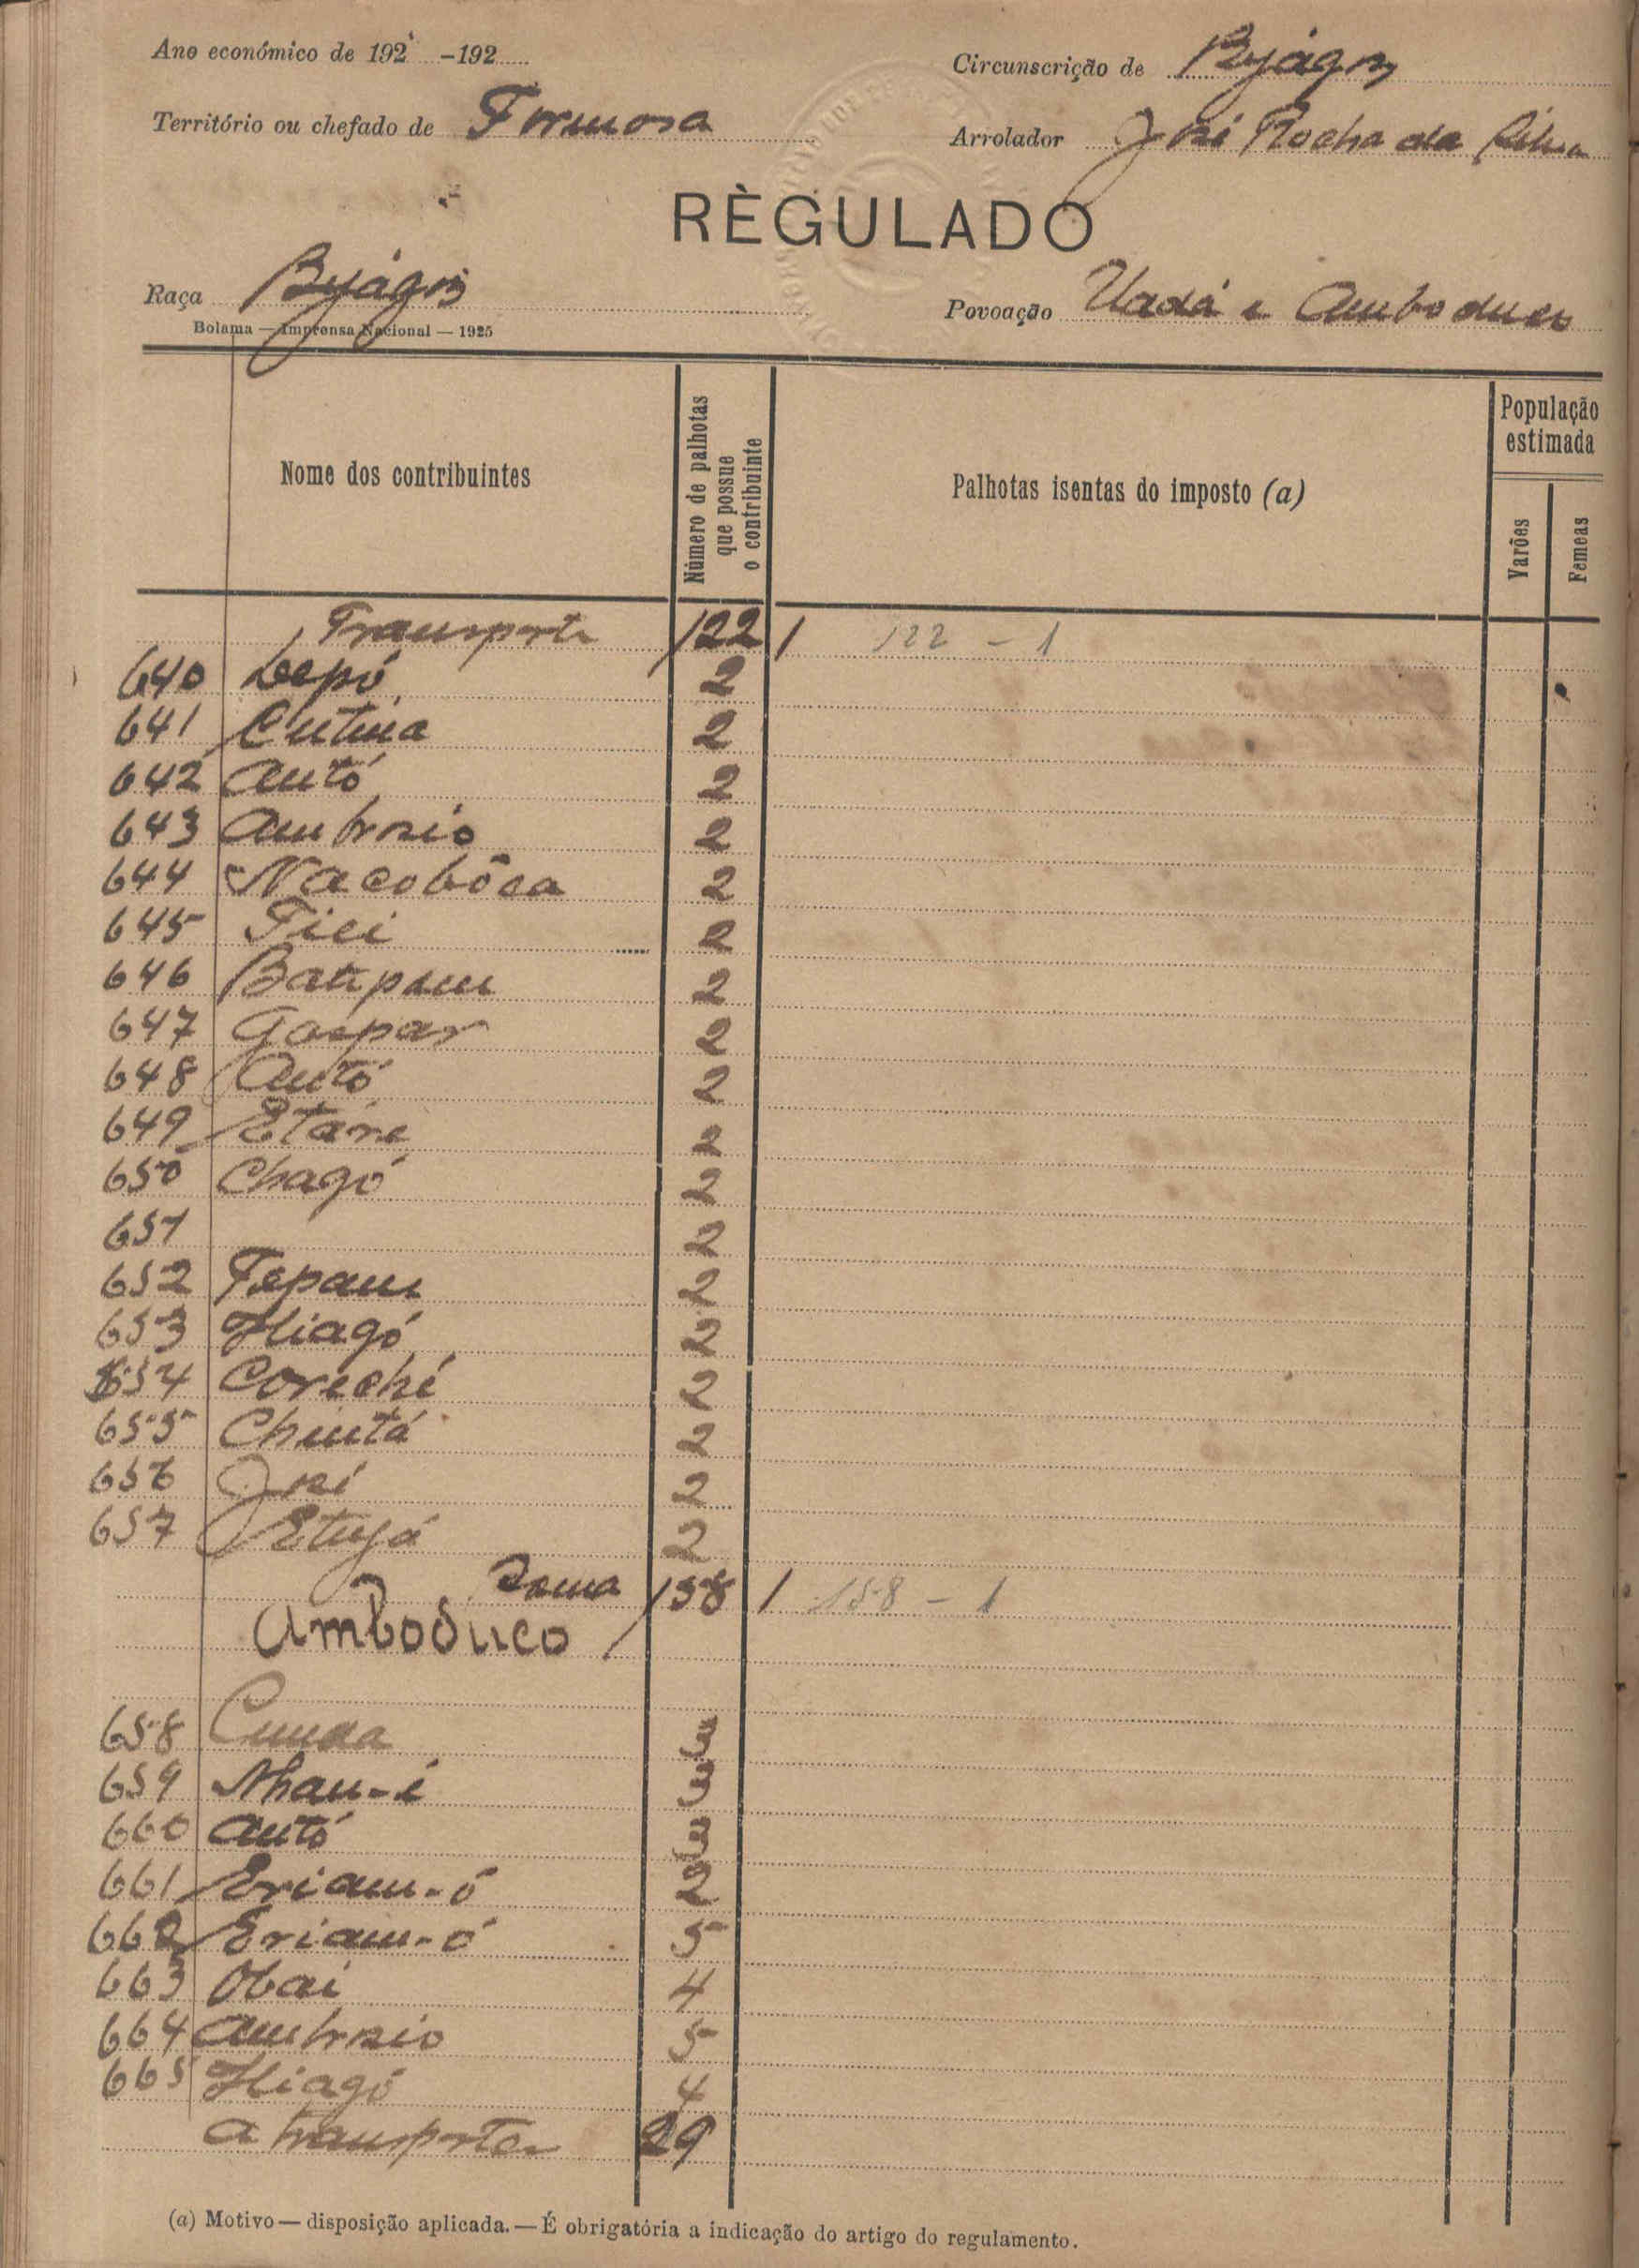 Ano económico de 192 -192
Circunscrição de Byágos
Território ou chefado de Formosa
Arrolador José Rocha da Silva
RÈGULADO
Raça Byágós
Povoação Uadá e Amboduco
Bolama — Imprensa Nacional — 1925
Nome dos contribuintes
Número de palhotas que possue o contribuinte
Palhotas isentas do imposto (a)
População estimada
Varões
Femeas
Transporte 122 1 122 - 1
640 Depó 2
641 Cutina 2
642 Autó 2
643 Ambrosio 2
644 Nacobôca 2
645 Fici 2
646 Batipam 2
647 Gaspar 2
648 Autó 2
649 Etáre 2
650 Chagó 2
651 2
652 Tepam 2
653 Hiagó 2
654 Coreché 2
655 Chuitá 2
656 José 2
657 Etujá 2
Soma 158 1 158 - 1
Amboduco
658 Cunda 3
659 Nhau-i 3
660 Autó 3
661 Eriam-ó 2
662 Eriam-ó 5
663 Obai 4
664 Ambrosio 5
665 Hiagó 4
A transportar 29
(a) Motivo — disposição aplicada. — É obrigatória a indicação do artigo do regulamento.